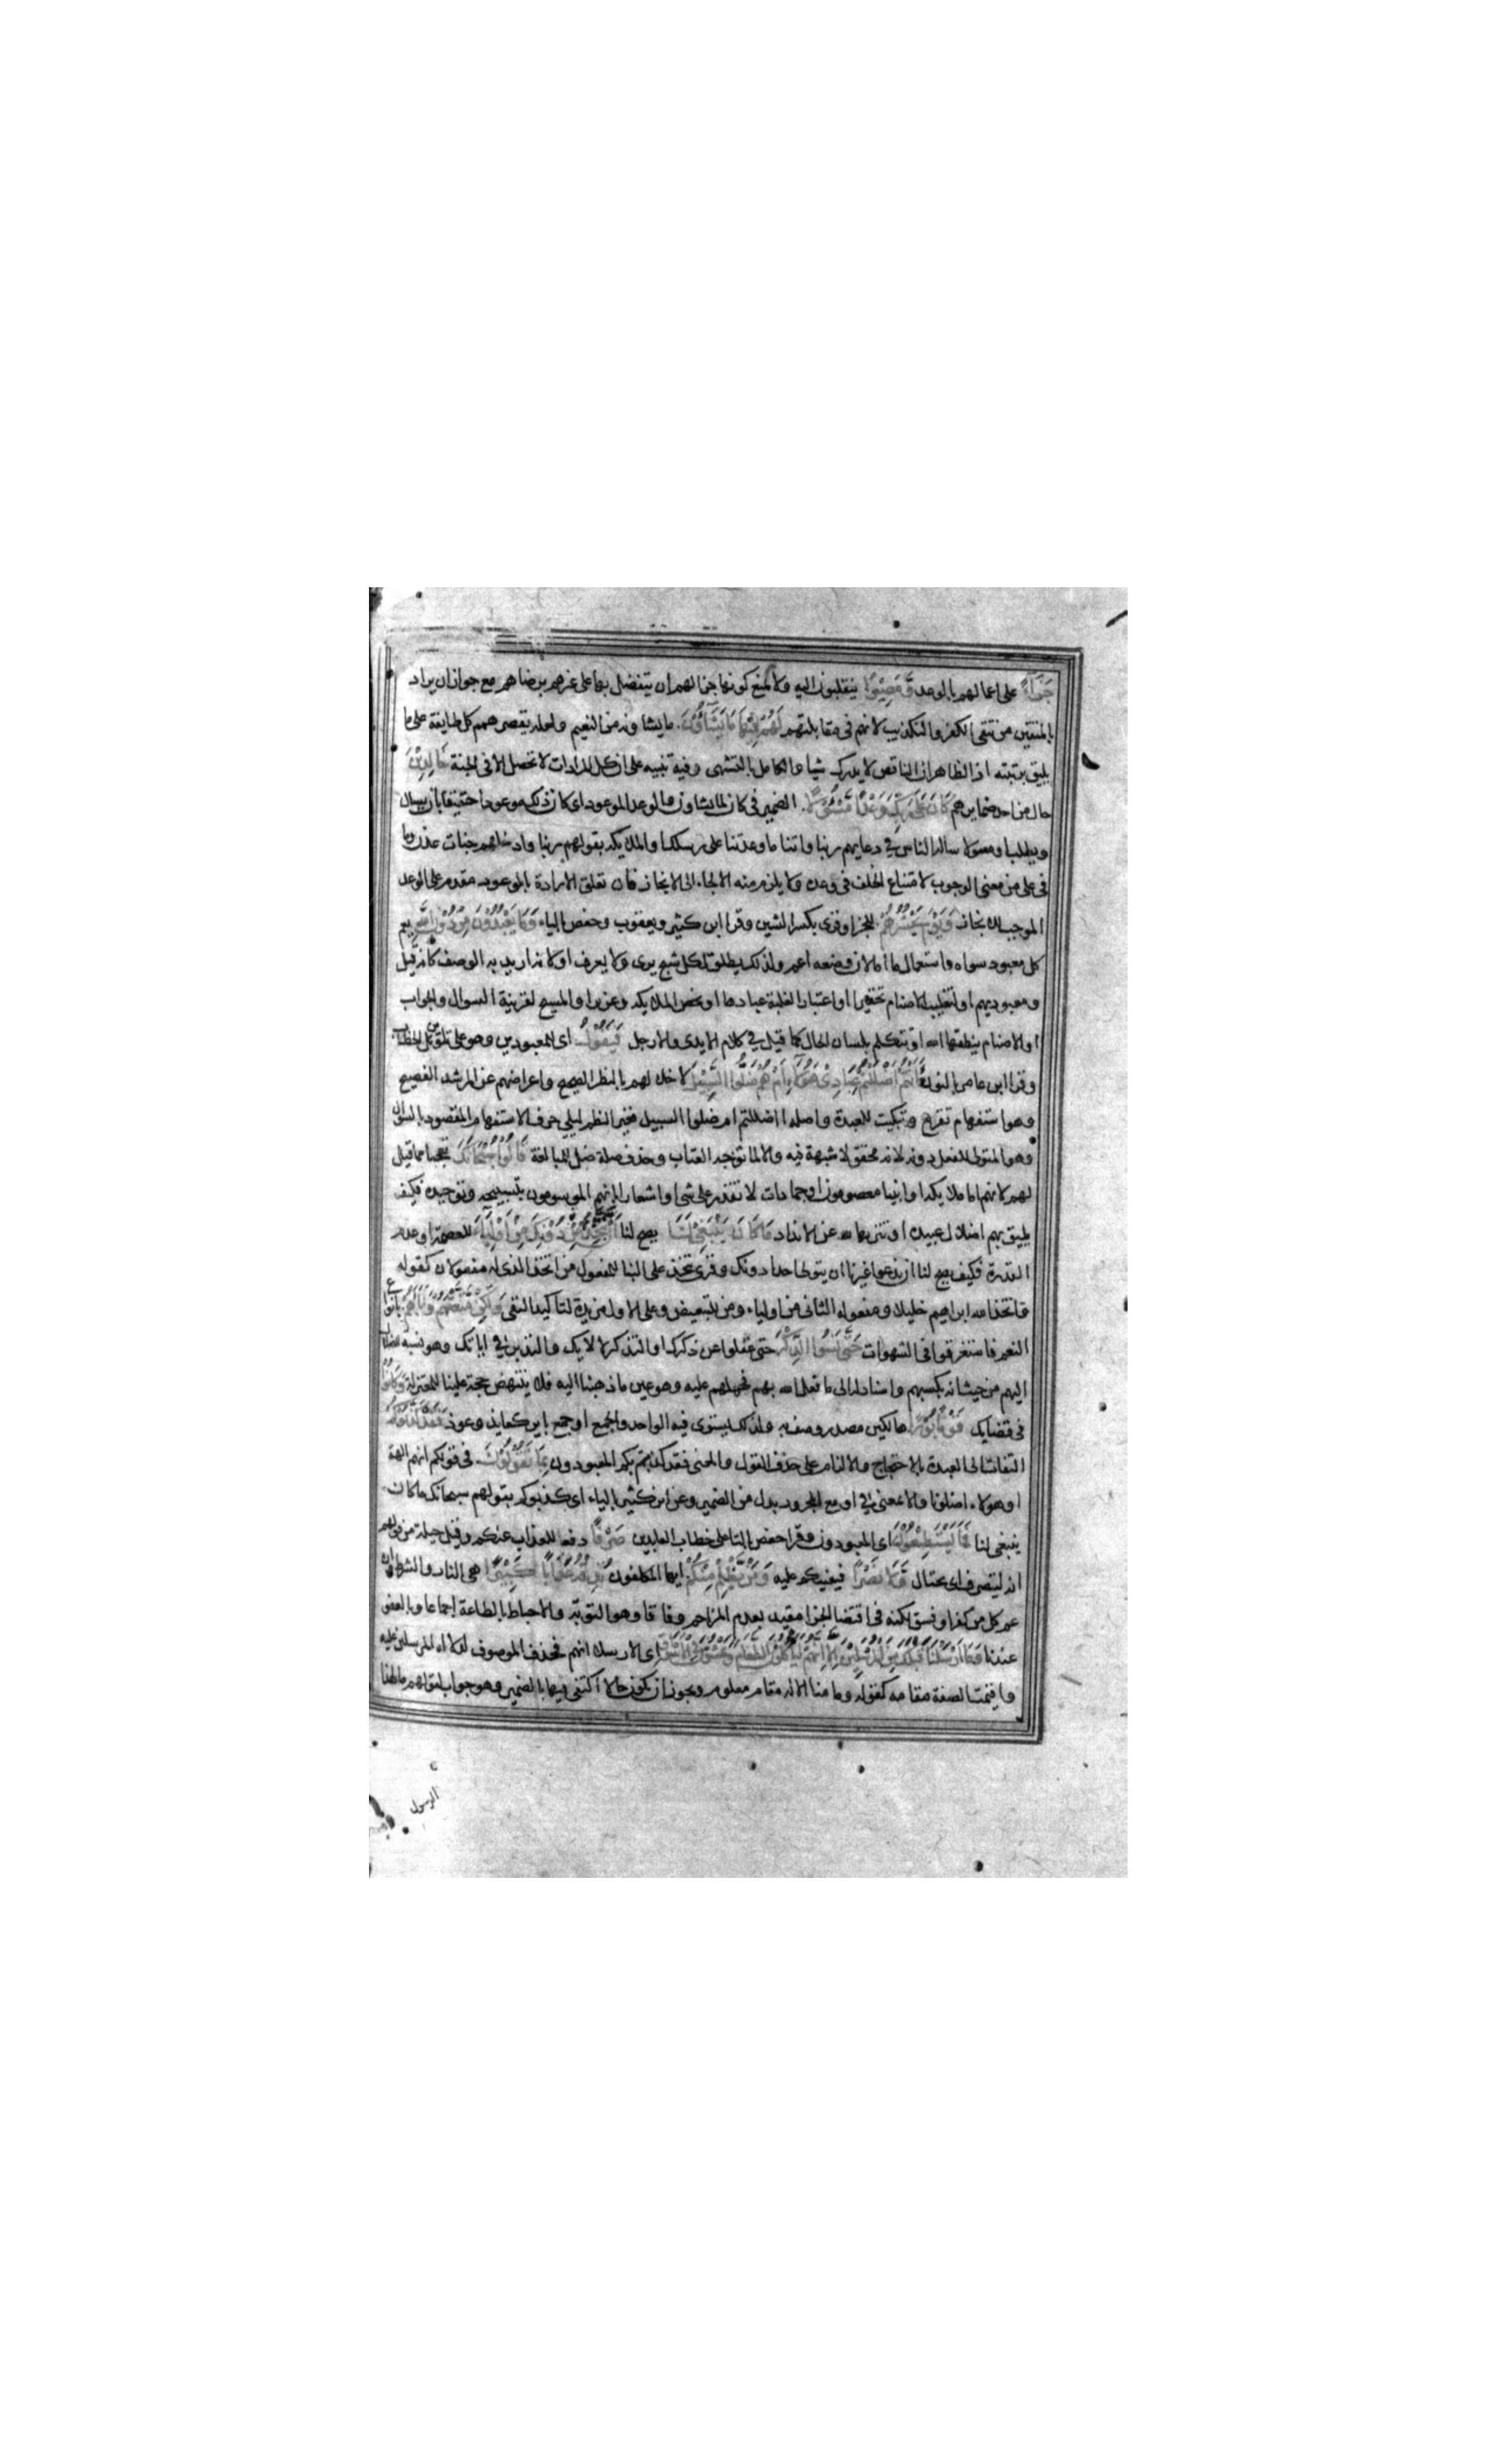 جَزَآءً على اعمالهم بالوعد وَّمَصِيْرًا ينقلبون اليه ولا يمنع كونها جزا لهم ان يتفضل بها على غيرهم برضاهم مع جواز ان يراد
بالمتقين من يتقى الكفر والتكذيب لانهم فى مقابلتهم لَهُمْ فِيْهَا مَا يَشَآؤُنَ ما يشاونه من النعيم ولعله يقصر همم كل طايفة على ما
يليق برتبته اذ الظاهر ان الناقص لا يدرك شيا مما الكامل بالتشهى وفيه تنبيه على ان كل المرادات لا تحصل الا فى الجنة خَالِدِيْنَ
حال من احد ضمايرهم كَانَ عَلٰى رَبِّكَ وَعْدًا مَّسْئُوْلًا الضمير فى كان لما يشاون والوعد الموعود اى كان ذلك موعودا حقيقا بان يسال
ويطلب او مسولا ساله الناس فى دعايهم ربنا واتنا ما وعدتنا على رسلك او الملايكه بقولهم ربنا وادخلهم جنات عدن وما
فى على من معنى الوجوب لامتناع الخلف فى وعده ولا يلزم منه الالجاء الى الانجاز فان تعلق الارادة بالموعود مقدم على الوعد
الموجب للانجاز وَيَوْمَ يَحْشُرُهُمْ للجزا وقرى بكسر الشين وقرا ابن كثير ويعقوب وحفص بالياء وَمَا يَعْبُدُوْنَ مِنْ دُوْنِ اللهِ يعم
كل معبود سواه واستعمال ما اما لان وضعه اعم ولذلك يطلق لكل شبح يرى ولا يعرف او لانه اريد به الوصف كانه قيل
ومعبوديهم او لتغليب الاصنام تحقيرا او اعتبار الغلبة عبادها او يخص الملايكه وعزيرا والمسيح لقرينة السوال والجواب
او الاصنام ينطقها الله او تتكلم بلسان الحال كما قيل فى كلام الايدى والارجل فَيَقُوْلُ اى للمعبودين وهو على تلوين الخطاب
وقرا ابن عامر بالنون ءَاَنْتُمْ اَضْلَلْتُمْ عِبَادِىْ هٰؤُلَآءِ اَمْ هُمْ ضَلُّوا السَّبِيْلَ لاخلالهم بالنظر الصحيح واعراضهم عن المرشد الفصيح
وهو استفهام تقريع وتبكيت للعبدة واصله ااضللتم ام ضلوا السبيل فغير النظم ليلى حرف الاستفهام المقصود بالسوال
وهو المتولى للفعل دونه لانه محقق لا شبهة فيه والا لما توجه العتاب وحذف صلة ضل للمبالغة قَالُوْا سُبْحَانَكَ تعجبا مما قيل
لهم لانهم اما ملايكه او انبيا معصومون او جمادات لا تقدر على شى او اشعارا بانهم الموسومون بتسبيحه وتوحيده فكيف
يليق بهم اضلال عبيده او تنزيها لله عن الانداد مَا كَانَ يَنْبَغِىْ لَنَا يصح لنا اَنْ نَتَّخِذَ مِنْ دُوْنِكَ مِنْ اَوْلِيَآءَ للعصمة او عدم
القدرة فكيف يصح لنا ان ندعو غيرنا ان يتولى احدا دونك وقرى نتخذ على البنا للمفعول من اتخذ الذى له مفعولان كقوله
فاتخذ الله ابراهيم خليلا ومفعوله الثانى من اولياء ومن للتبعيض وعلى الاول مزيدة لتاكيد النفى وَلٰكِنْ مَّتَّعْتَهُمْ وَاٰبَآءَهُمْ بانواع
النعم فاستغرقوا فى الشهوات حَتّٰى نَسُوا الذِّكْرَ حتى غفلوا عن ذكرك او التذكر لالايك والتدبر فى اياتك وهو نسبة للضلال
اليهم من حيث انه بكسبهم واسناد له الى ما فعل الله بهم فحملهم عليه وهو عين ما ذهبنا اليه فلا ينتهض حجة علينا للمعتزلة وَكَانُوْا
فى قضايك قَوْمًا بُوْرًا هالكين مصدر وصف به ولذلك يستوى فيه الواحد والجمع او جمع باير كعايذ وعوذ فَقَدْ كَذَّبُوْكُمْ
التفات الى العبدة بالاحتجاج والالزام على حذف القول والمعنى فقد كذبتم بكم المعبودون بِمَا تَقُوْلُوْنَ فى قولكم انهم الهة
او هولاء اضلونا والا بمعنى فى او مع المجرور بدل من الضمير وعن ابن كثير بالياء اى كذبوكم بقولهم سبحانك ما كان
ينبغى لنا فَمَا يَسْتَطِيْعُوْنَ اى المعبودون وقرا حفص بالتا على خطاب العابدين صَرْفًا دفعا للعذاب عنكم وقيل حيلة من قولهم
انه ليتصرف اى يحتال وَّلَا نَصْرًا فيعينكم عليه وَمَنْ يَّظْلِمْ مِنْكُمْ ايها المكلفون نُذِقْهُ عَذَابًا كَبِيْرًا هى النار والشرط وان
عم كل من كفر او فسق لكنه فى اقتضا الجزا مقيد بعدم المزاحم وفاقا وهو التوبة والاحباط بالطاعة اجماعا وبالعفو
عندنا وَمَا اَرْسَلْنَا قَبْلَكَ مِنَ الْمُرْسَلِيْنَ اِلَّا اِنَّهُمْ لَيَاْكُلُوْنَ الطَّعَامَ وَيَمْشُوْنَ فِى الْاَسْوَاقِ اى الا رسلا انهم فحذف الموصوف لدلالة المرسلين عليه
واقيمت الصفة مقامه كقوله وما منا الا له مقام معلوم ويجوز ان يكون حالا اكتفى فيها بالضمير وهو جواب لقولهم مال هذا
الرسول